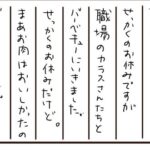 せっかくのお休みですが
職場のカラスさんたちと
バーベキューにいきました。
せっかくのお休みだけど。
まあお肉はおいしかたの